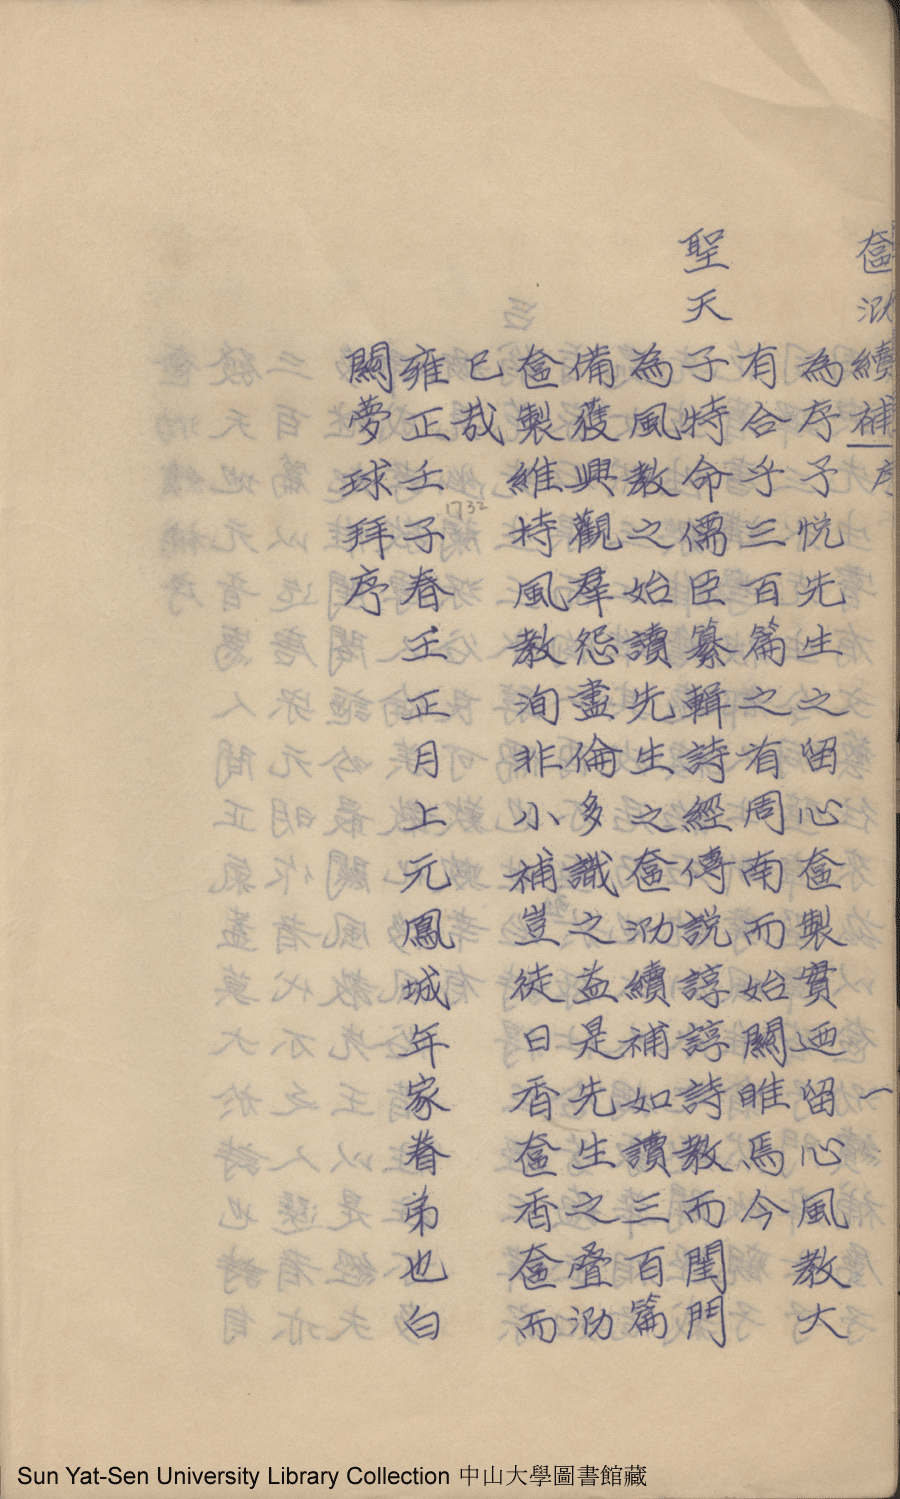 奩泐續補序 一
為序予悅先生之留心奩製實迺留心風教大
有合乎三百篇之有周南而始關雎焉今
聖天子特命儒臣纂輯詩經傳說諄諄詩教而閨門
為風教之始讀先生之奩泐續補如讀三百篇
備獲興觀羣怨盡倫多識之益是先生之奩泐
奩製維持風教洵非小補豈徒日香奩香奩而
已哉
雍正壬子春王正月上元鳳城年家眷弟也白
關夢球拜序
1732
Sun Yat-Sen University Library Collection 中山大學圖書館藏